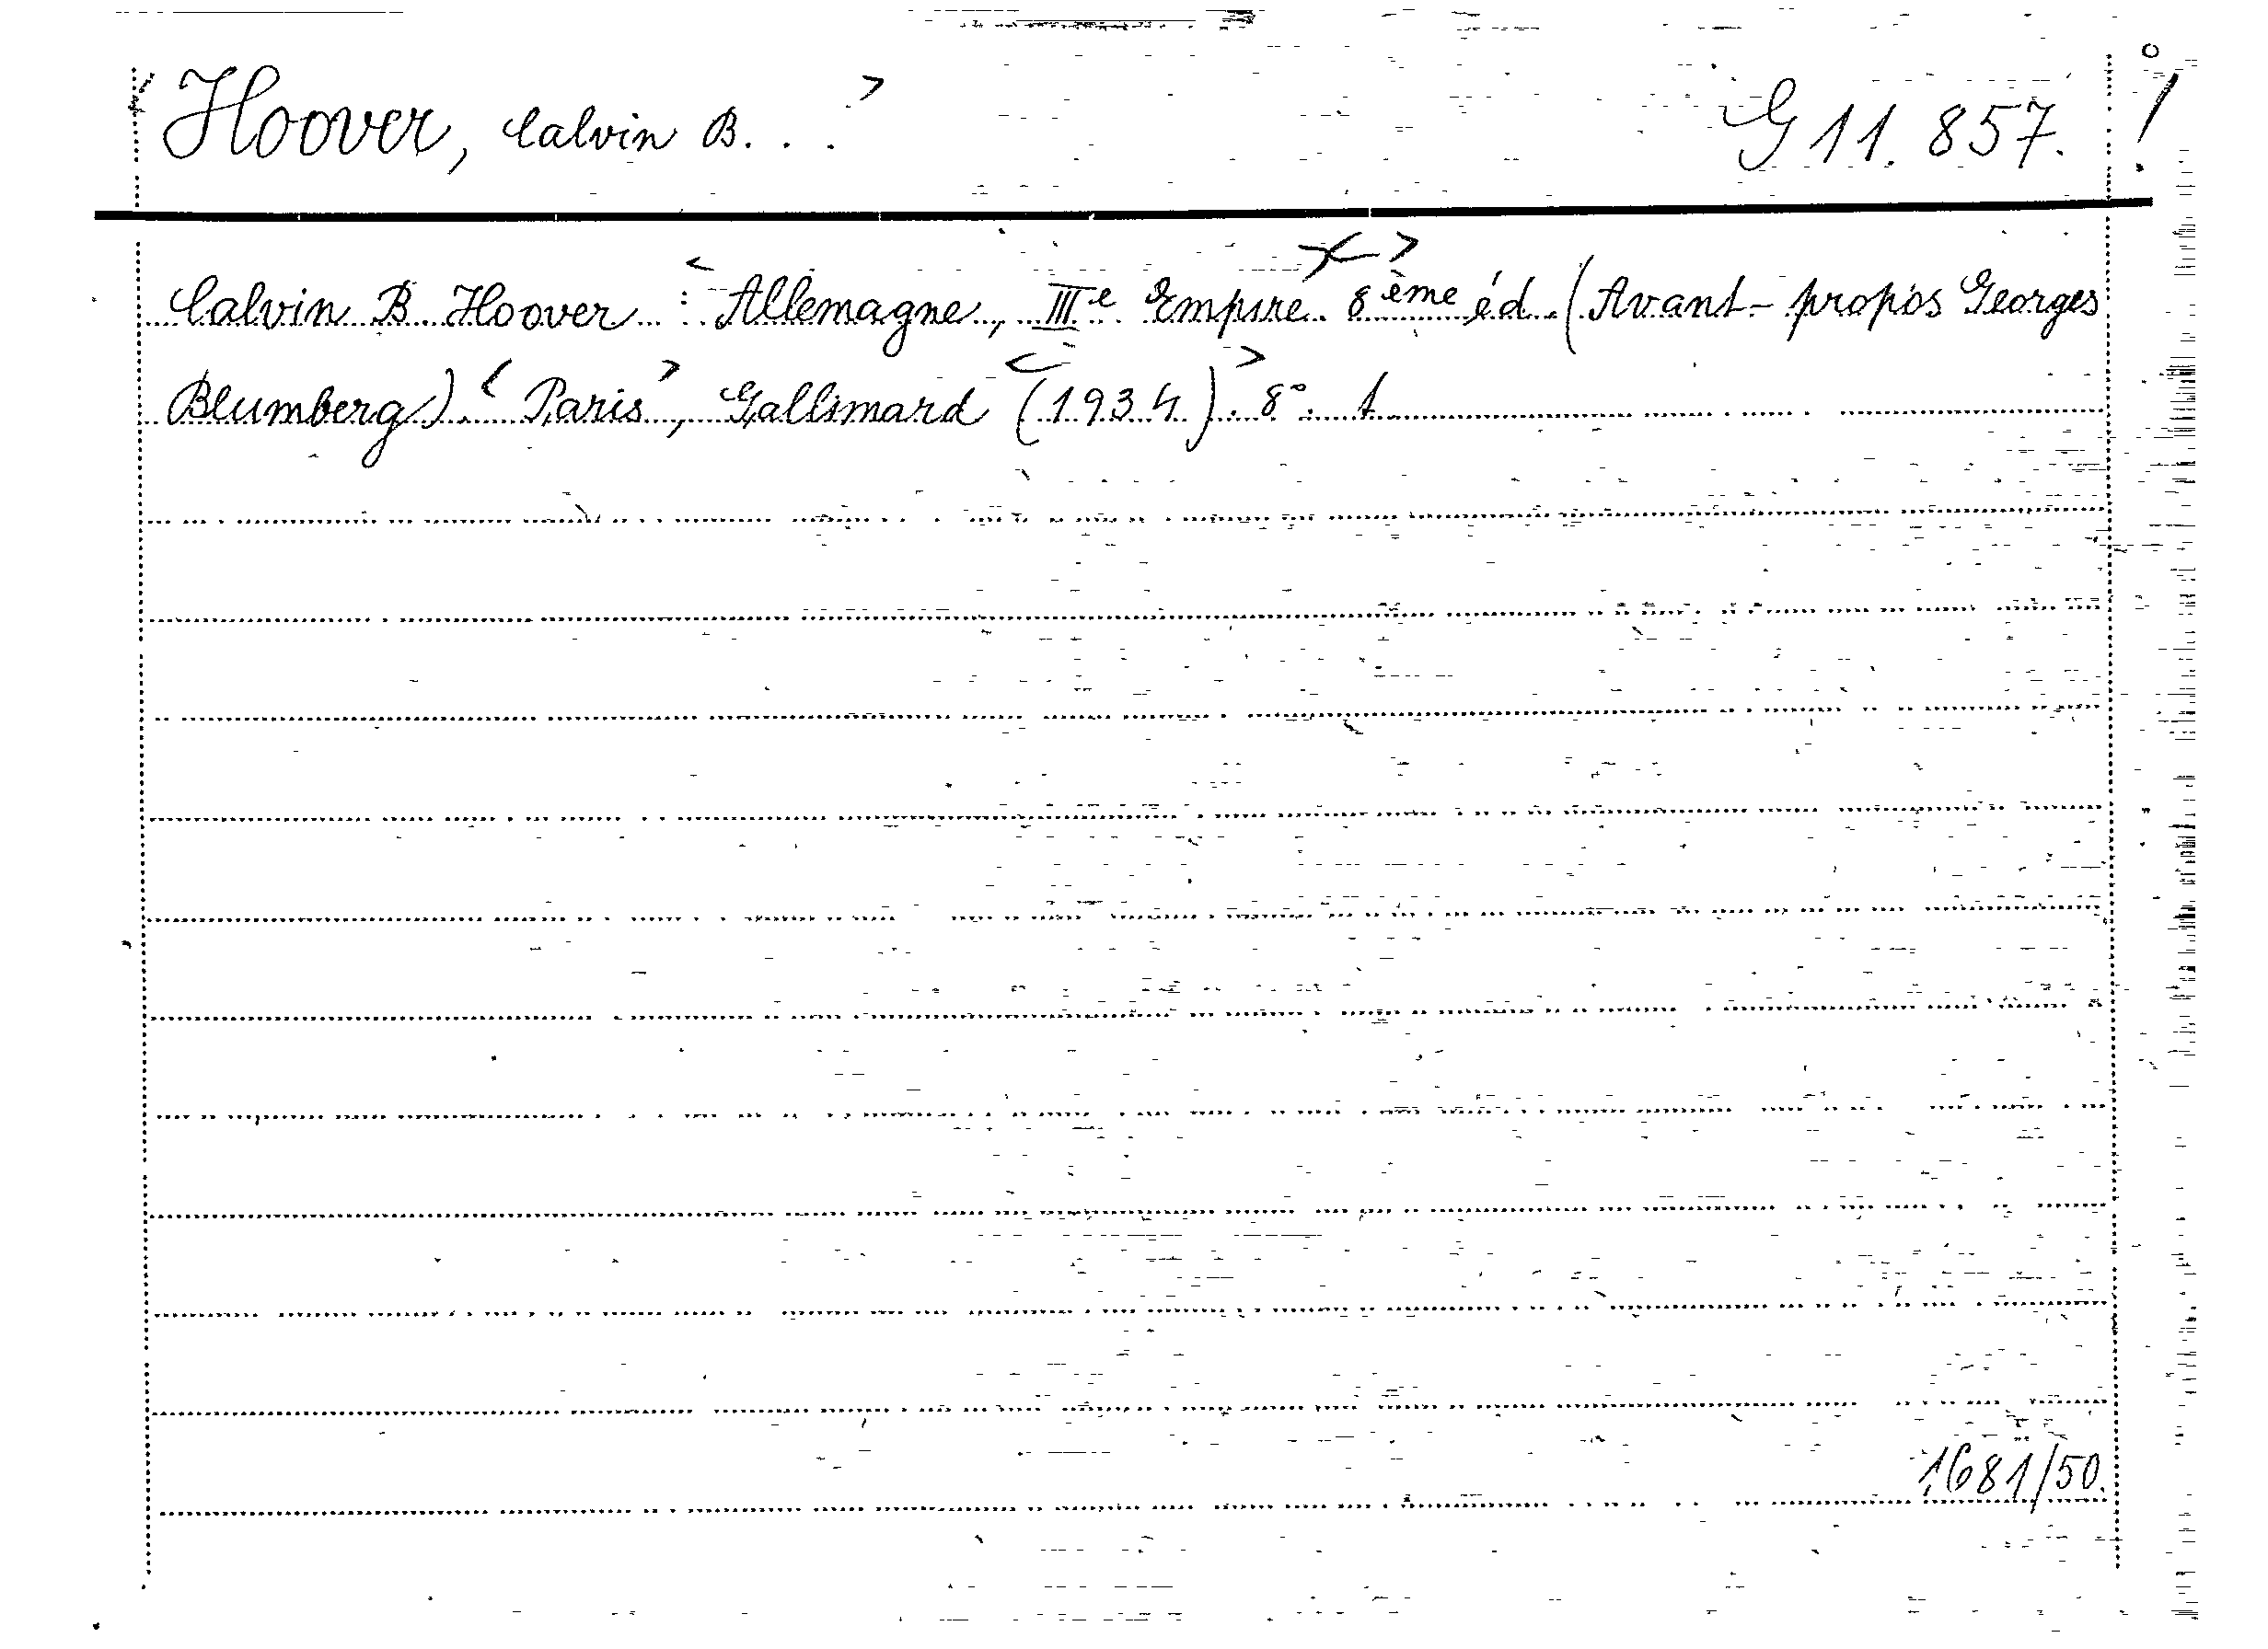 Hoover, Calvin B. . . > G 11. 857.
Calvin B Hoover : < Allemagne, IIIe Empire > 8ème éd. (Avant-propos Georges
Blumberg). < Paris >, Gallimard < (1934) >. 8°. 1
1681/50.